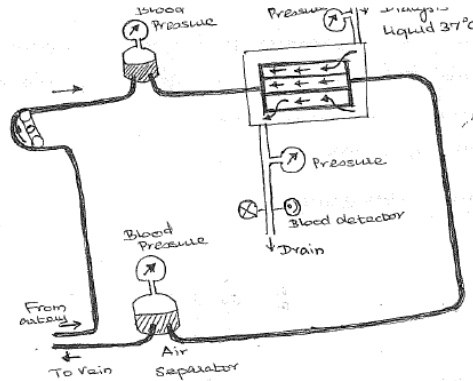 Blood
Pressure
Pressure
Liquid 37°C
Pressure
Blood detector
Drain
Blood
Pressure
From
artery
To vein
Air
Separator